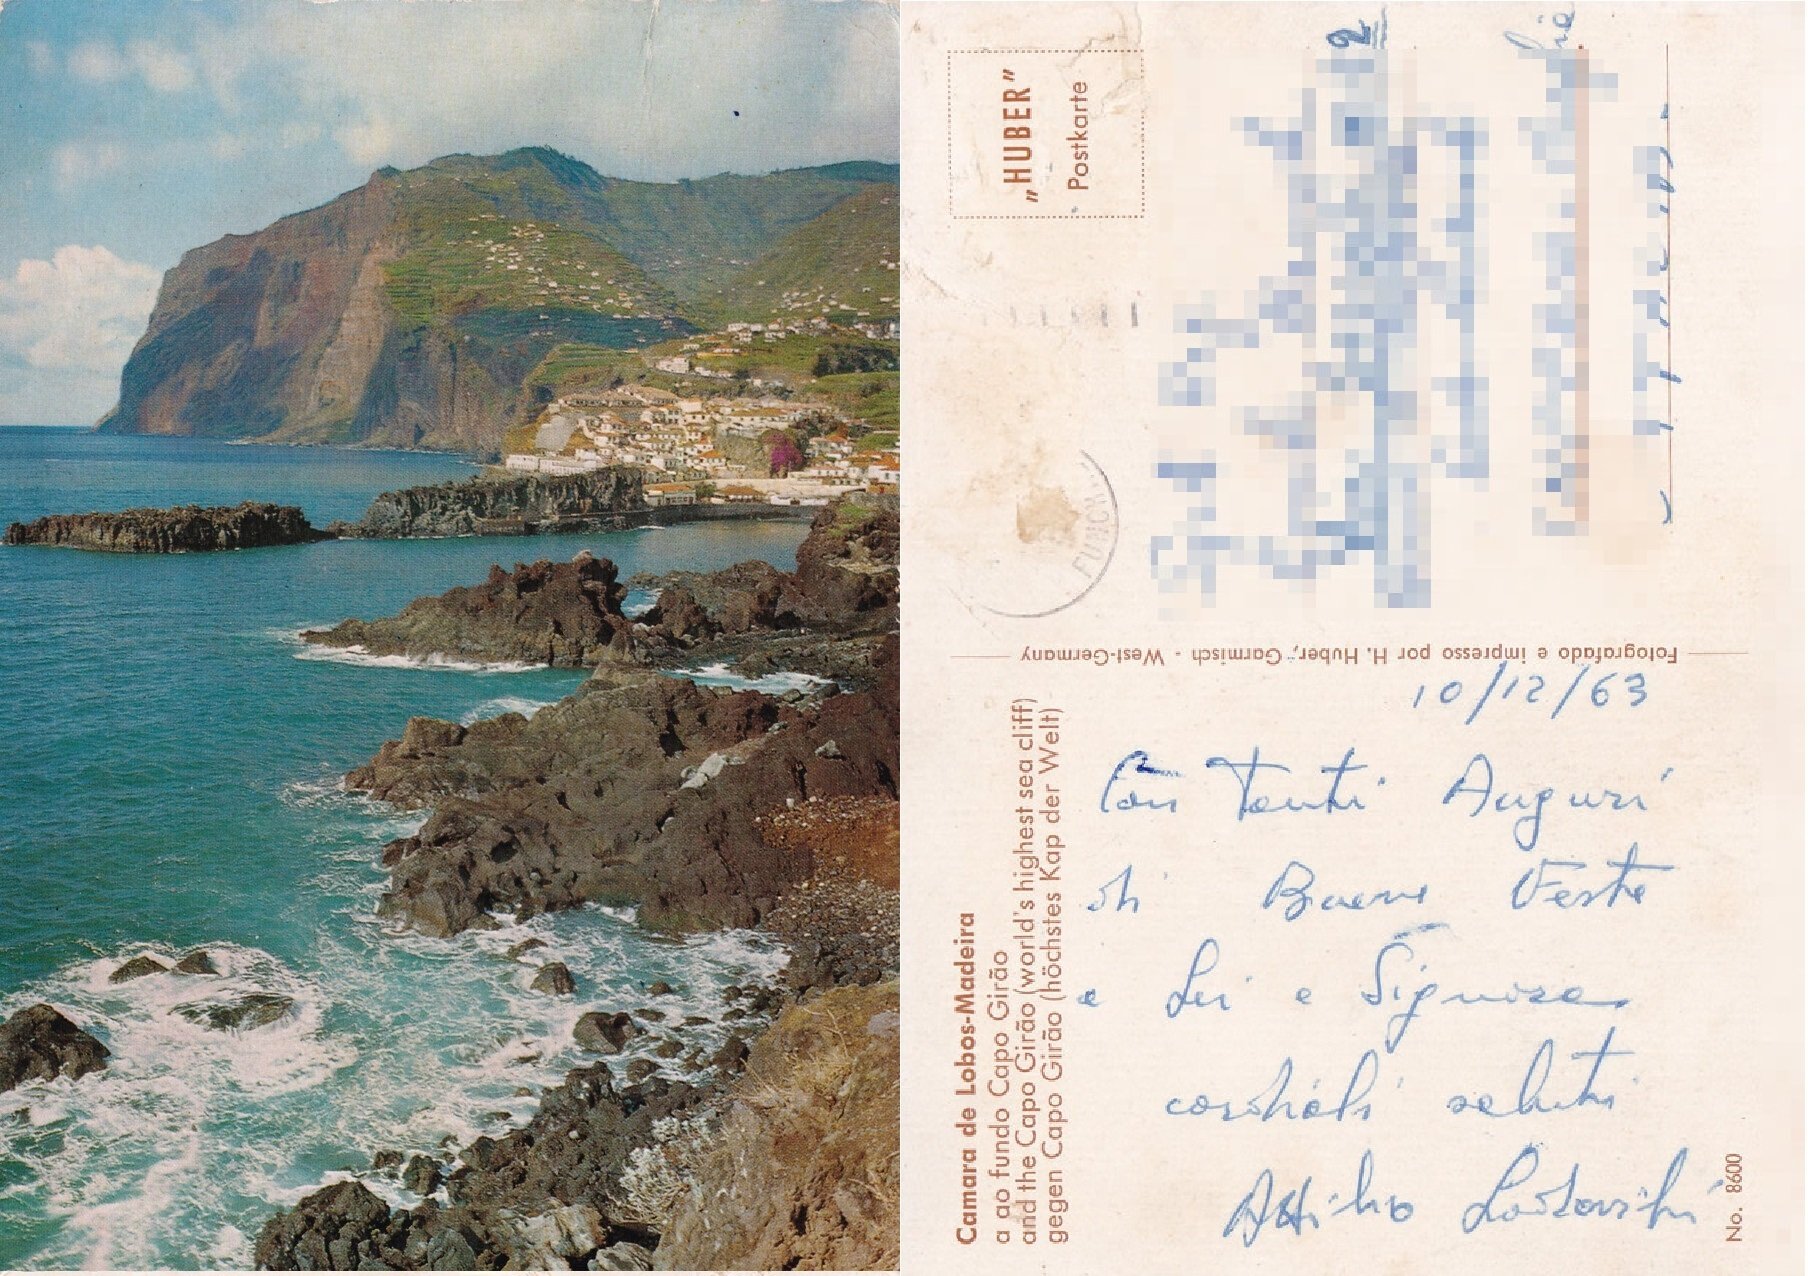 „HUBER”
Postkarte
FUNCH
2
Fotografado e impresso por H. Huber, Garmisch - West-Germany
Camara de Lobos-Madeira
a ao fundo Capo Girão
and the Capo Girão (world's highest sea cliff)
gegen Capo Girão (höchstes Kap der Welt)
10/12/63
Con Tanti Auguri
di Buone Feste
a Lei e Signora
cordiali saluti
Attilio
No. 8600